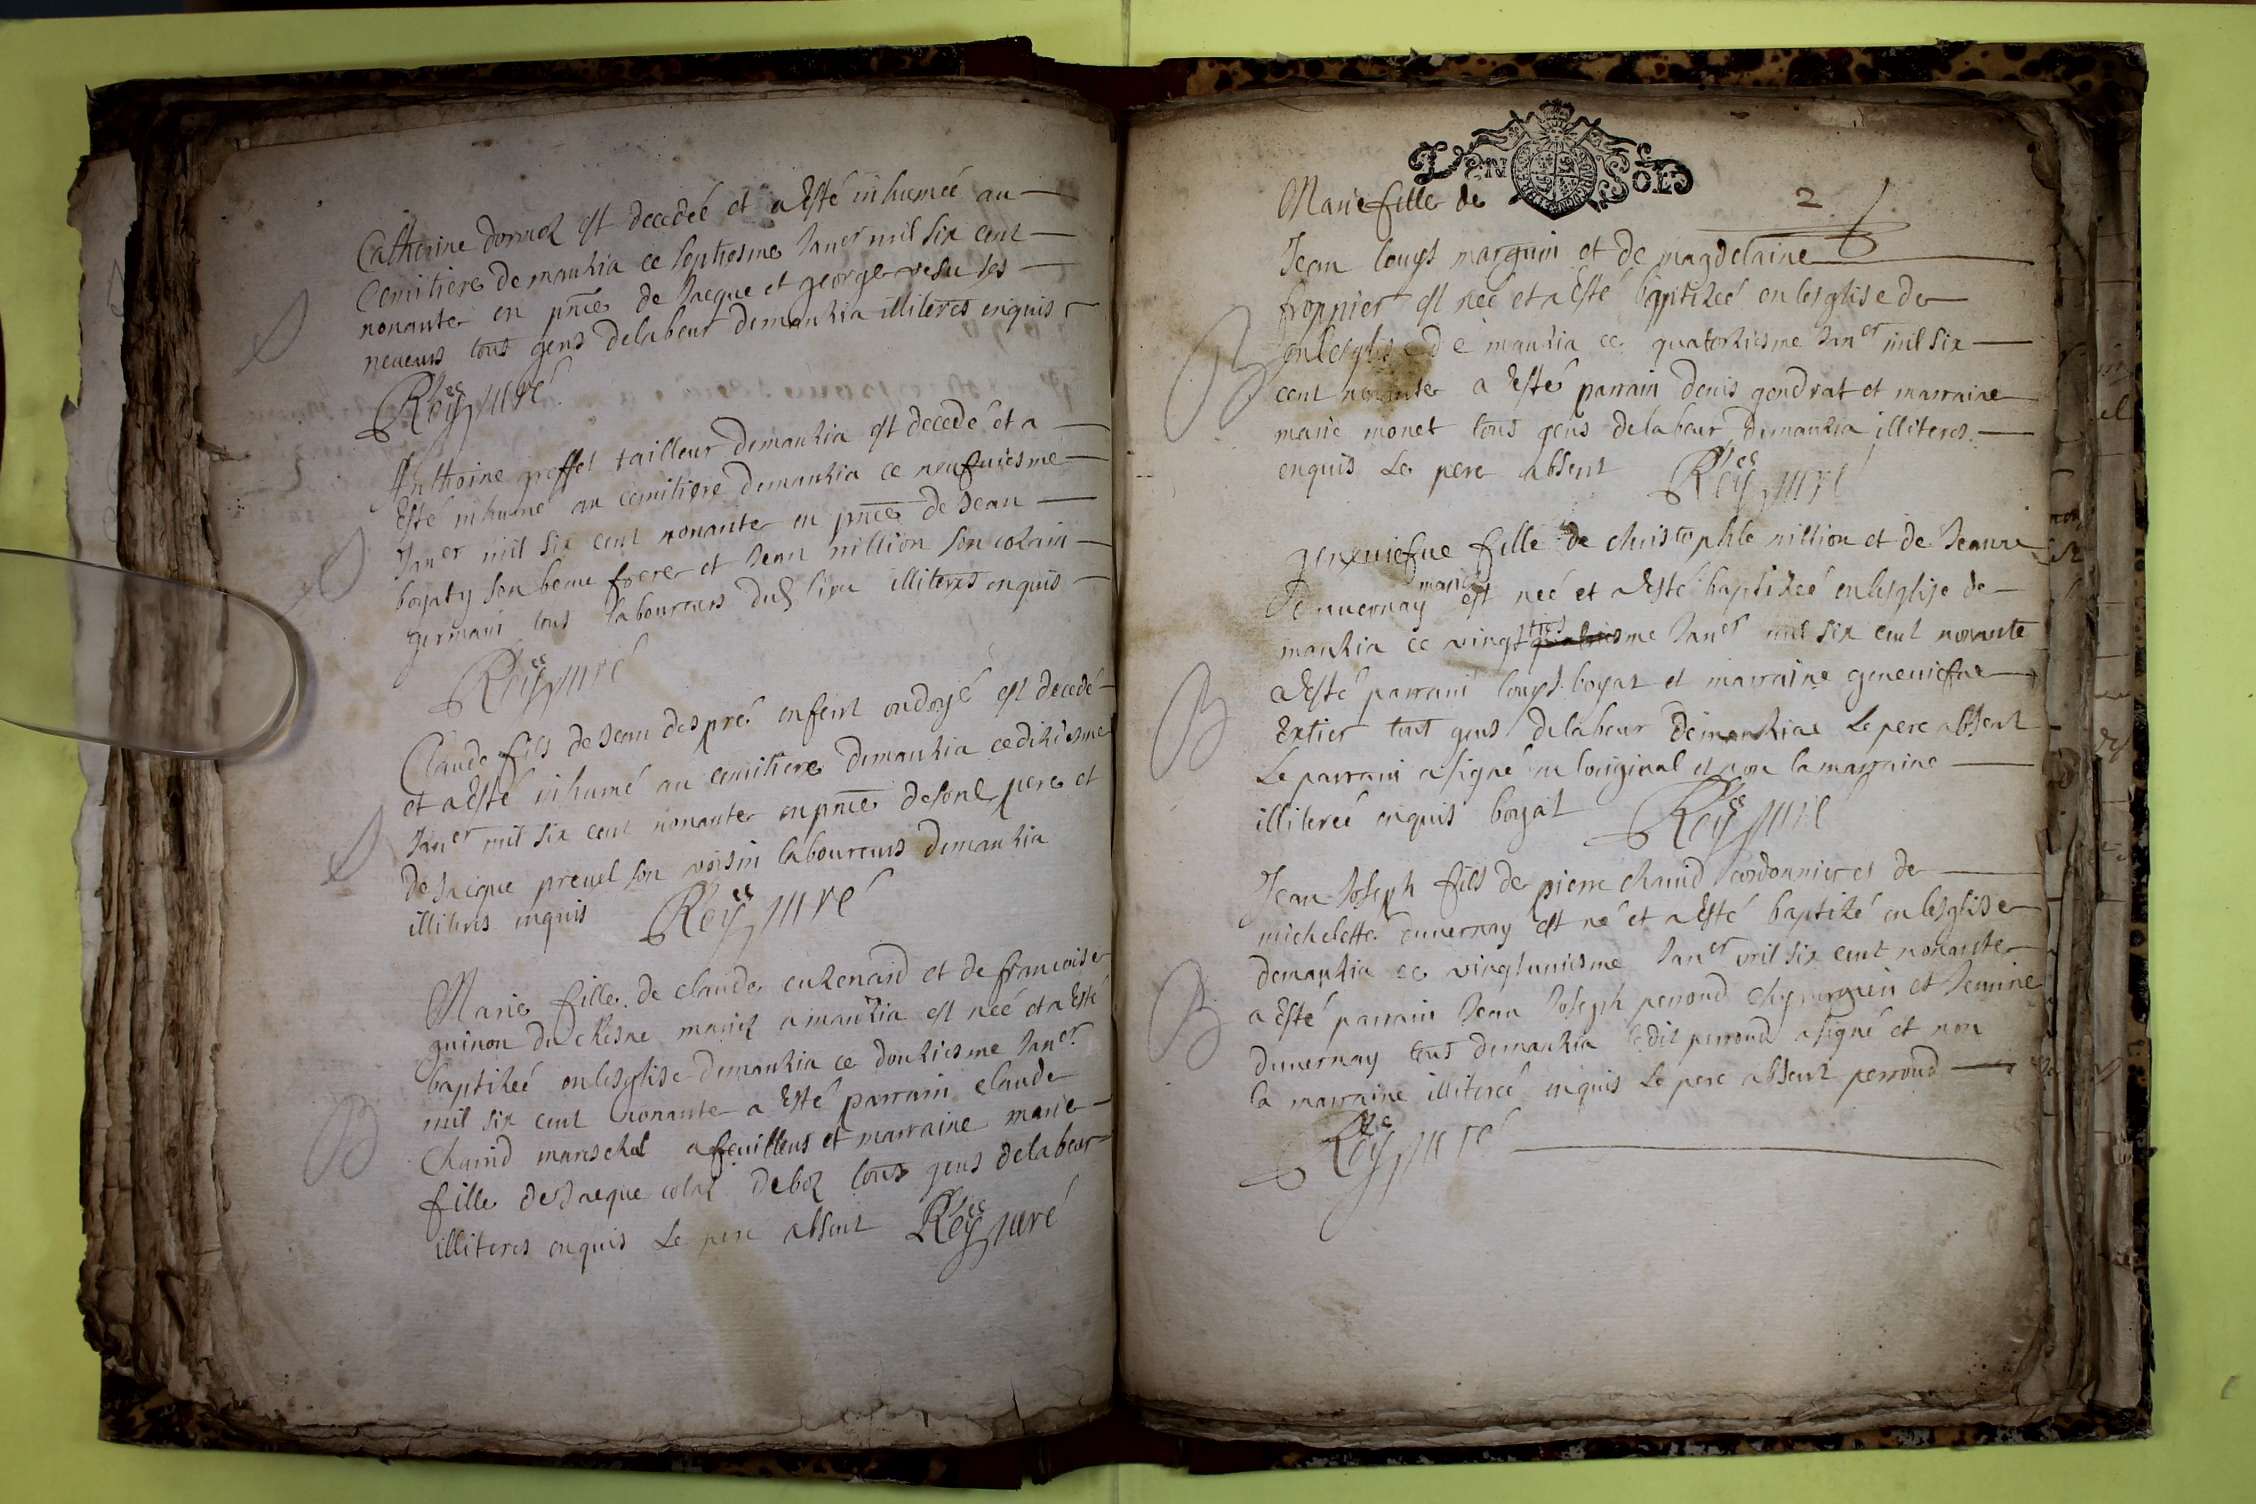 Catherine dornuel est decedeé et a Esté inhumeé au
Cemitiere de mankia ce septiesme Janer mil six cent
nonante en pnce de Jacque et george ses
neueus tous gens delabeur demankia illiteres enquis
Rey curé
Anthoine greffet tailleur demankia est decedé et a
Esté inhumé au cemitiere demankia ce neufuiesme
Janer mil six cent nonante en pnce de Jean
son beau frere et Jean million son cosain
germain tous laboureurs dud lieu illiteres enquis
Rey curé
Claude fils de Jean després enfent ondoyé est decedé
et a Esté inhumé au cemitiere demankia ce dixiesme
Janer mil six cent nonante en pnce desond pere et
de Jacque preuel son voisin laboureurs demankia
illiteres enquis Rey curé
Marie fille de claude cukenard et de francoise
guinon du chesne a mankia est neé et a Esté
baptiseé en lesglise demankia ce douziesme Janer
mil six cent nonante a Esté parrain claude
Chanid mareschal a feuilleus et marraine marie
fille de Jacque debol tous gens delabeur
illiteres enquis Le pere absent Rey curé
DEN SOLD
2
Marie fille de
Jean louys marguin et de magdelaine
froppier est neé et a Esté baptiseé en lesglise de
en lesglise de mankia ce quatorziesme Janer mil six
cent nonante a Esté parrain denis gondrat et marraine
marie monet tous gens delabeur demankia illiteres
enquis Le pere absent Rey curé
geneuiefue fille de christophle million et de Jeanne
Dunernay mariés est neé et a Esté baptiseé en lesglise de
mankia ce vingt troisme Janer mil six cent nonante
a Esté parrain louys boyat et marraine geneuiefue
Extier tout gens delabeur demankia Le pere absent
Le parrain a signé en loriginal et non la marraine
illitereé enquis boyat Rey curé
Jean Joseph fils de pierre chanid cordonnier et de
michelette dunernay est né et a Esté baptisé en lesglise
demankia ce vingtuniesme Janer mil six cent nonante
a Esté parrain Jean Joseph perroud chyrurgien et Jeanne
dunernay tous demankia ledit perroud a signé et non
la marraine illitereé enquis Le pere absent perroud
Rey curé